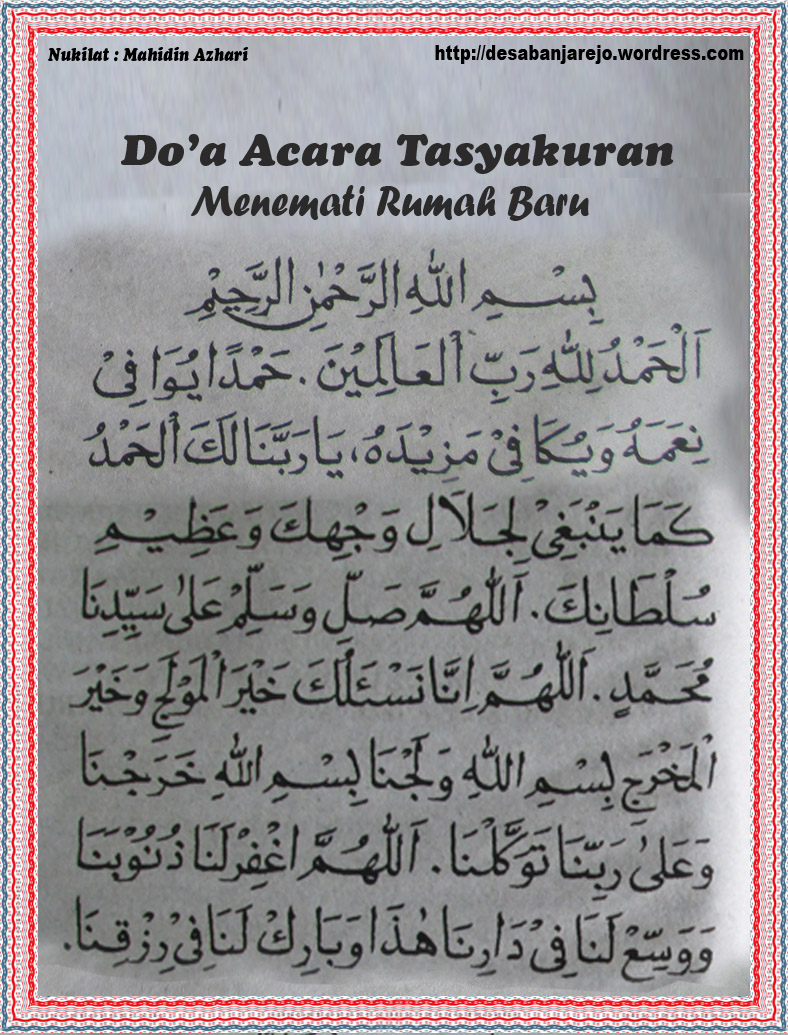 Nukilat : Mahidin Azhari
http://desabanjarejo.wordress.com
Do'a Acara Tasyakuran
Menemati Rumah Baru
بِسْمِ اللهِ الرَّحْمٰنِ الرَّحِيْمِ
اَلْحَمْدُ لِلّٰهِ رَبِّ الْعَالَمِيْنَ . حَمْدًا يُوَا فِيْ
نِعَمَهُ وَيُكَا فِيْ مَزِيْدَهُ، يَا رَبَّنَا لَكَ الْحَمْدُ
كَمَا يَنْبَغِيْ لِجَلَالِ وَجْهِكَ وَعَظِيْمِ
سُلْطَانِكَ . اَللّٰهُمَّ صَلِّ وَسَلِّمْ عَلٰى سَيِّدِنَا
مُحَمَّدٍ . اَللّٰهُمَّ اِنَّا نَسْئَلُكَ خَيْرَ الْمَوْلَجِ وَخَيْرَ
الْمَخْرَجِ بِسْمِ اللهِ وَلَجْنَا بِسْمِ اللهِ خَرَجْنَا
وَعَلٰى رَبِّنَا تَوَكَّلْنَا . اَللّٰهُمَّ اغْفِرْلَنَا ذُنُوْبَنَا
وَوَسِّعْ لَنَا فِيْ دَارِنَا هٰذَا وَبَارِكْ لَنَا فِيْ رِزْقِنَا .